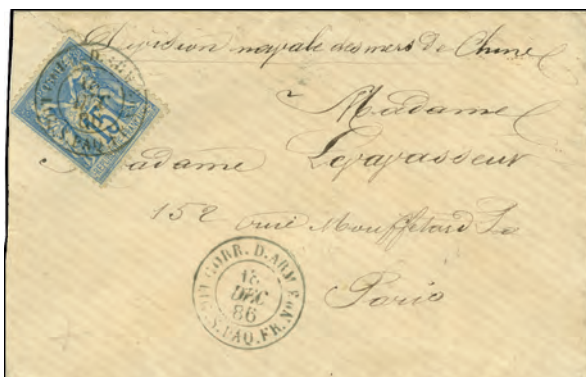 Division navale des mers de Chine
Madame
Madame Levavasseur
152 rue Mouffetard
Paris
CORR. D. ARM
18
DEC
86
PAQ. FR.
15